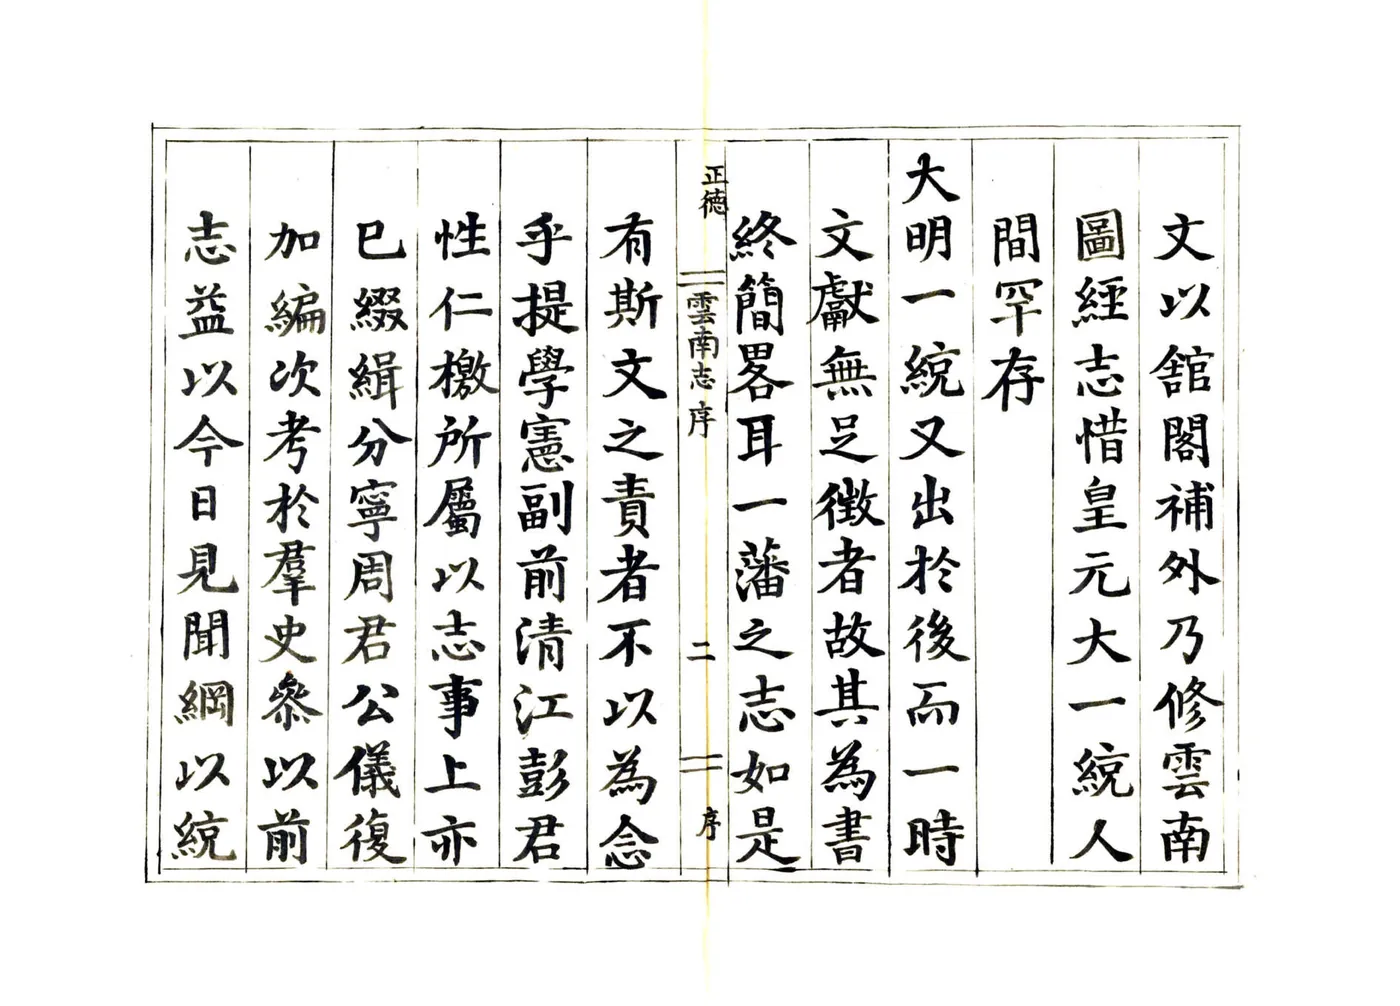 文以舘閣補外乃修雲南
圖經志惜皇元大一統人
間罕存
大明一統又出於後而一時
文獻無足徴者故其為書
終簡畧耳一藩之志如是
正德
雲南志序
二
序
有斯文之責者不以為念
乎提學憲副前清江彭君
性仁檄所屬以志事上亦
已綴緝分寧周君公儀復
加編次考於羣史叅以前
志益以今日見聞綱以統